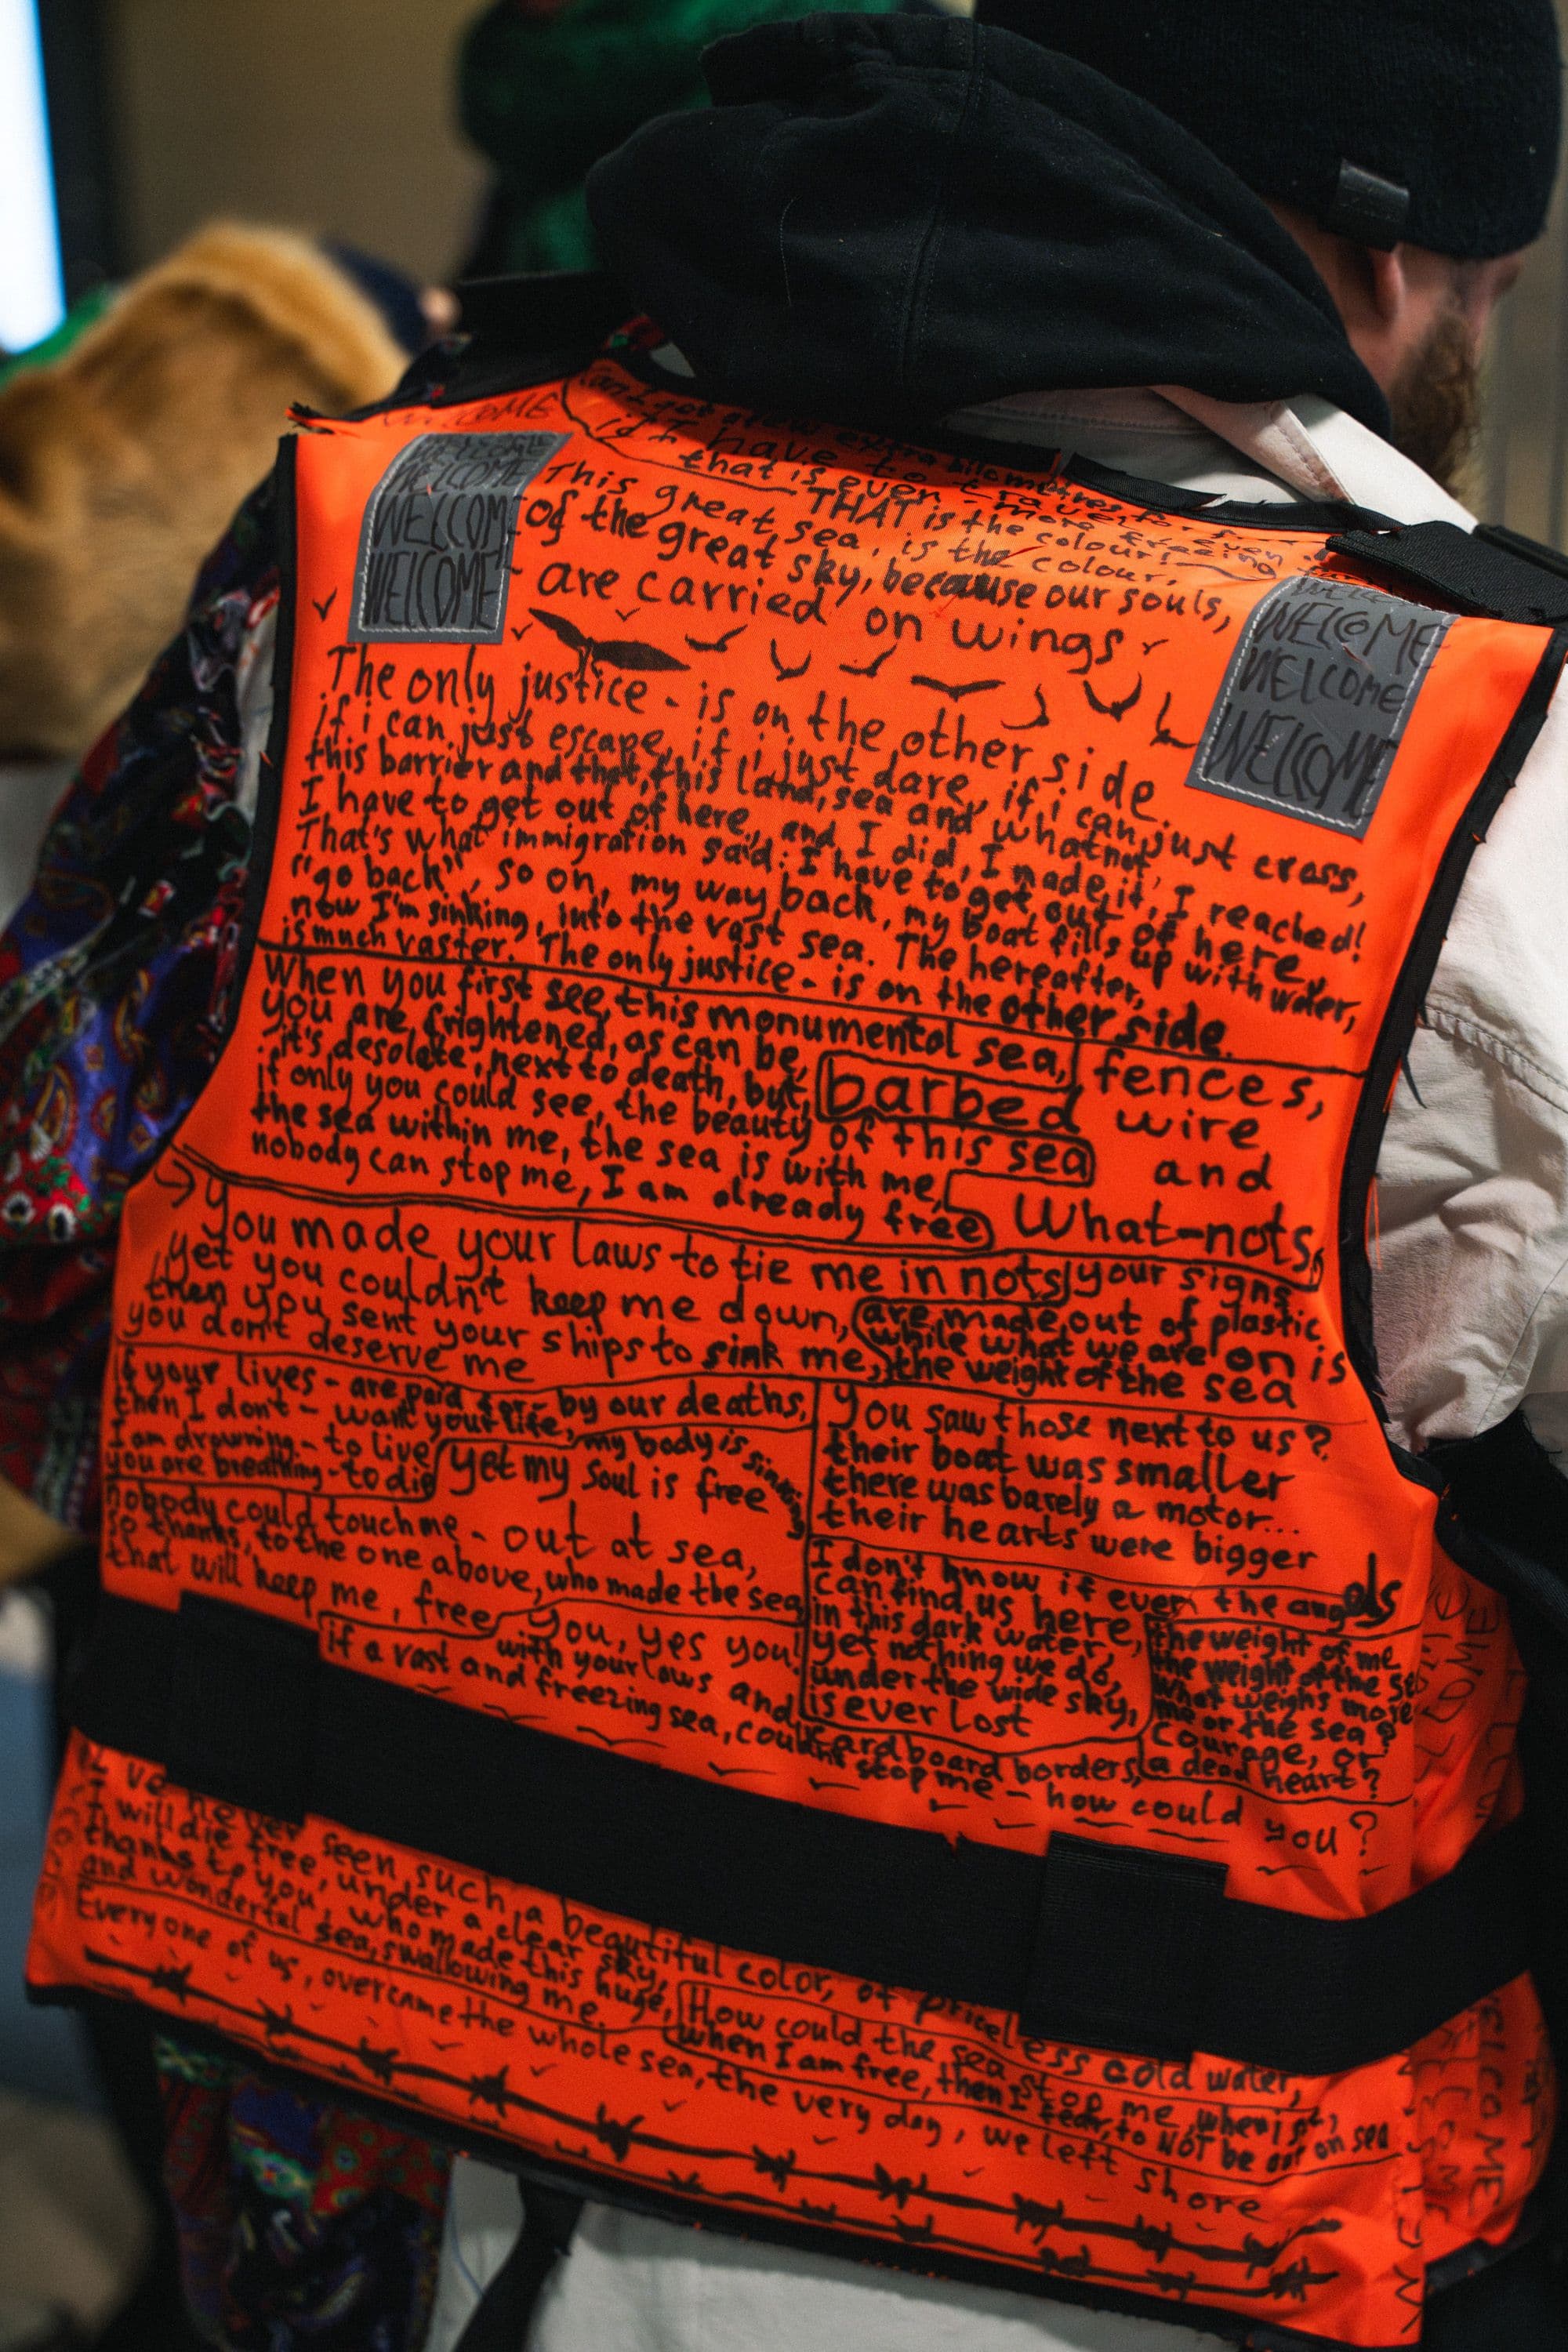 WELCOME
WELCOME
WELCOME
WELCOME
WELCOME
if I have to travel
that is even more freeing
THAT is the colour!
This great sea, is the colour,
of the great sky, because our souls,
- are carried on wings
WELCOME
WELCOME
WELCOME
The only justice - is on the other side
if i can just escape, if i just dare, if i can just cross,
this barrier and that, this land, sea and whatnot,
I have to get out of here, and I did, I made it, I reached!
That's what immigration said: I have to get out of here,
"go back", so on, my way back, my boat fills up with water,
now I'm sinking, into the vast sea. The hereafter,
is much vaster. The only justice - is on the other side.
When you first see, this monumental sea,
you are frightened, as can be,
it's desolate, next to death, but,
if only you could see, the beauty of this sea
the sea within me, the sea is with me,
nobody can stop me, I am already free
fences,
barbed wire
and
What-nots,
You made your laws to tie me in nots
yet you couldn't keep me down,
then you sent your ships to sink me,
you don't deserve me
your signs
are made out of plastic
while what we are on is
the weight of the sea
if your lives - are paid for - by our deaths,
then I don't - want your life,
I am drowning - to live
you are breathing - to die
my body is sinking
yet my soul is free
nobody could touch me - out at sea,
so thanks, to the one above, who made the sea
that will keep me, free
You saw those next to us?
their boat was smaller
there was barely a motor...
their hearts were bigger
I don't know if even the angels
can find us here,
in this dark water,
yet nothing we do,
under the wide sky,
is ever lost
the weight of me
the weight of the sea
what weighs more
me or the sea?
courage, or
a dead heart?
you, yes you!
with your laws and cardboard borders,
if a vast and freezing sea, couldn't stop me - how could you?
I've never seen such a beautiful color, of priceless cold water,
I will die free, under a clear sky,
thanks to you, who made this huge,
and wonderful sea, swallowing me.
How could the sea stop me, when
when I am free, then I fear, to NOT be out on sea
Everyone of us, overcame the whole sea, the very day, we left shore